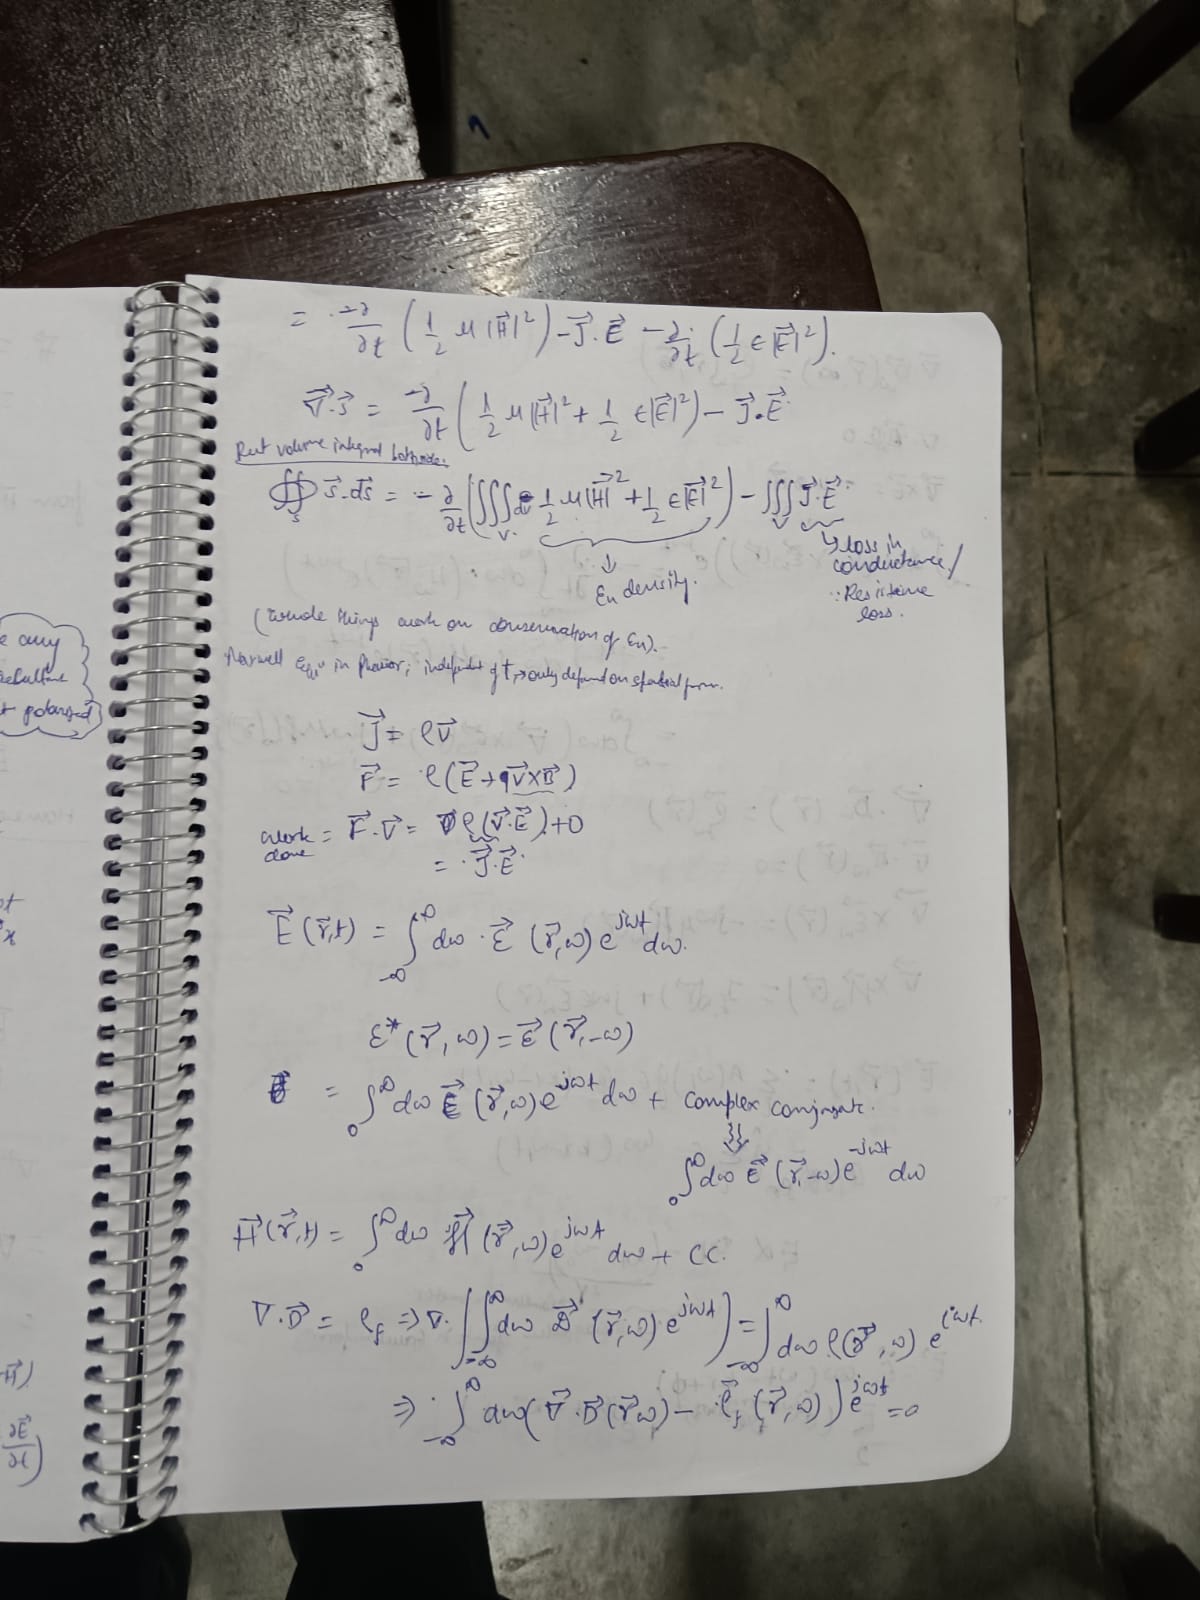 = -∂/∂t (1/2 μ|H⃗|²) - J⃗.E⃗ - ∂/∂t (1/2 ε|E⃗|²).
∇⃗.S⃗ = -∂/∂t (1/2 μ|H⃗|² + 1/2 ε|E⃗|²) - J⃗.E⃗
Put volume integral both side.
∯_S S⃗.dS⃗ = -∂/∂t (∭_V dv 1/2 μ|H⃗|² + 1/2 ε|E⃗|²) - ∭_V J⃗.E⃗
↳ loss in
conductance/
∴ Resistive
loss.
⇓
En density.
(whole things work on conservation of En).
Maxwell Eqⁿ in Phasor; independent of t, → only depend on spatial
J⃗ = ρv⃗
F⃗ = ρ(E⃗ + v⃗×B⃗)
work done = F⃗.V⃗ = ρ(V⃗.E⃗) + 0
= J⃗.E⃗
E⃗(r⃗,t) = ∫_{-∞}^{∞} dω . ℰ⃗ (r⃗,ω) e^{jωt} dω.
ℰ* (r⃗,ω) = ℰ⃗ (r⃗,-ω)
= ∫_0^∞ dω ℰ⃗ (r⃗,ω) e^{jωt} dω + complex conjugate.
⇓
∫_0^∞ dω ℰ⃗ (r⃗,-ω) e^{-jωt} dω
H⃗(r⃗,t) = ∫_0^∞ dω ℋ⃗ (r⃗,ω) e^{jωt} dω + CC.
∇.D⃗ = ρ_f ⇒ ∇.(∫_{-∞}^{∞} dω D⃗ (r⃗,ω) e^{jωt}) = ∫_{-∞}^{∞} dω ρ(r⃗,ω) e^{jωt}.
⇒ ∫_{-∞}^{∞} dω(∇⃗.D⃗(r⃗ω) - ρ_f (r⃗,ω)) e^{jωt} = 0
e any
t polarized
∂E⃗/∂t)